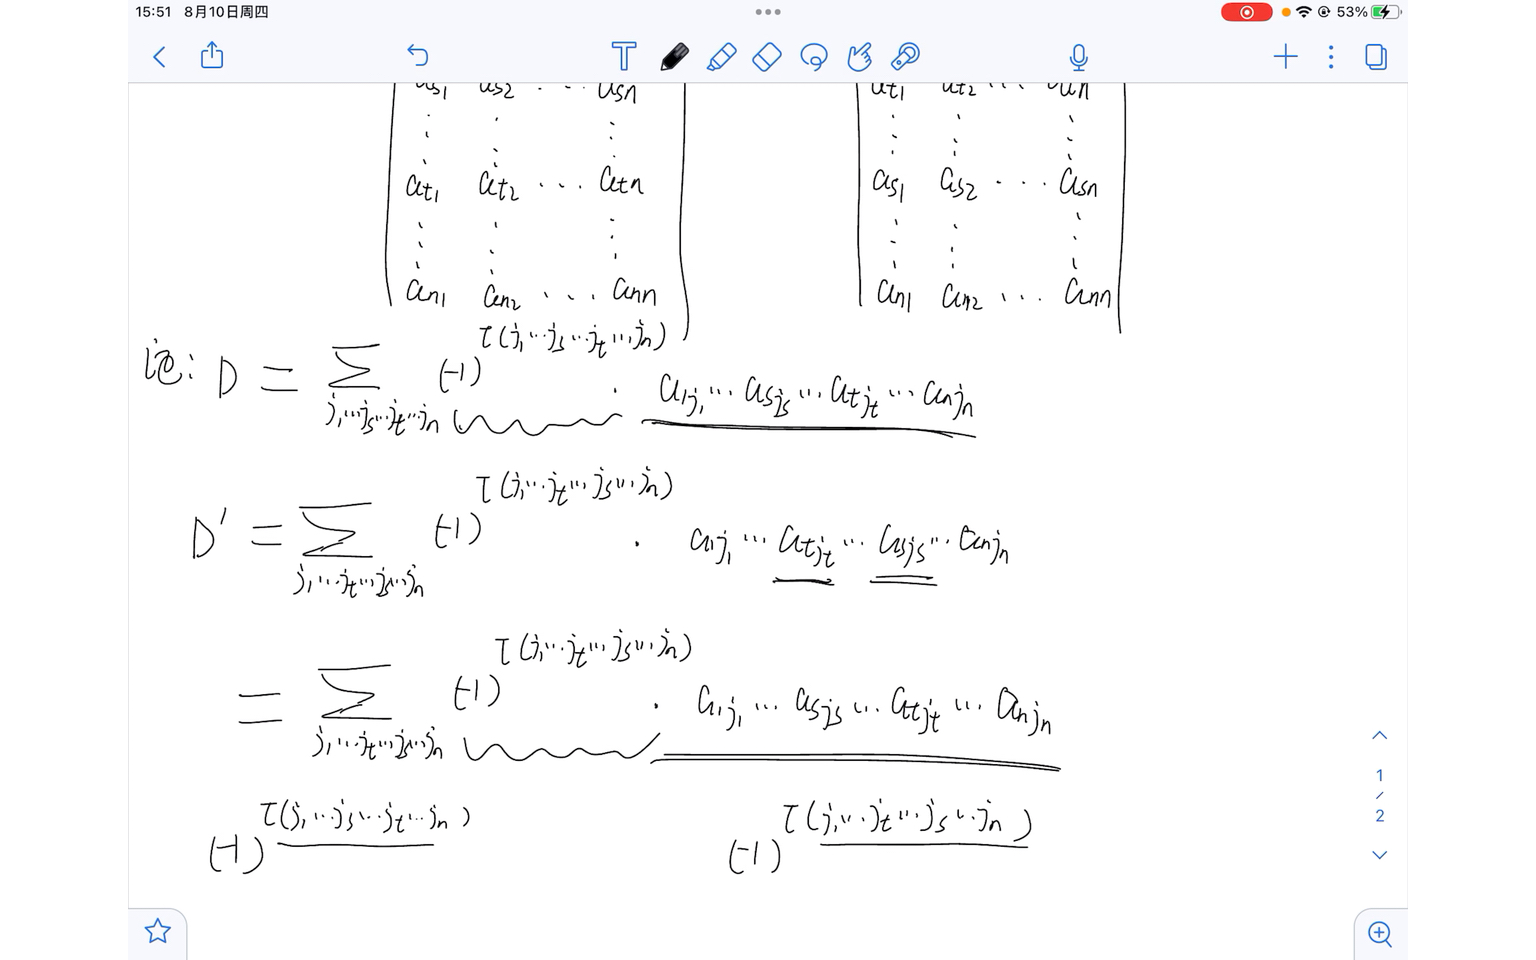 15:51 8月10日周四 53%
as1 as2 ... asn at1 at2 ...
at1 at2 ... atn as1 as2 ... asn
an1 an2 ... ann an1 an2 ... ann
记: D = Σ_{j1...js...jt...jn} (-1)^{τ(j1...js...jt...jn)} · a1j1...asjs...atjt...anjn
D' = Σ_{j1...jt...js...jn} (-1)^{τ(j1...jt...js...jn)} · a1j1...atjt...asjs...anjn
= Σ_{j1...jt...js...jn} (-1)^{τ(j1...jt...js...jn)} · a1j1...asjs...atjt...anjn
(-1)^{τ(j1...js...jt...jn)} (-1)^{τ(j1...jt...js...jn)}
1
/
2